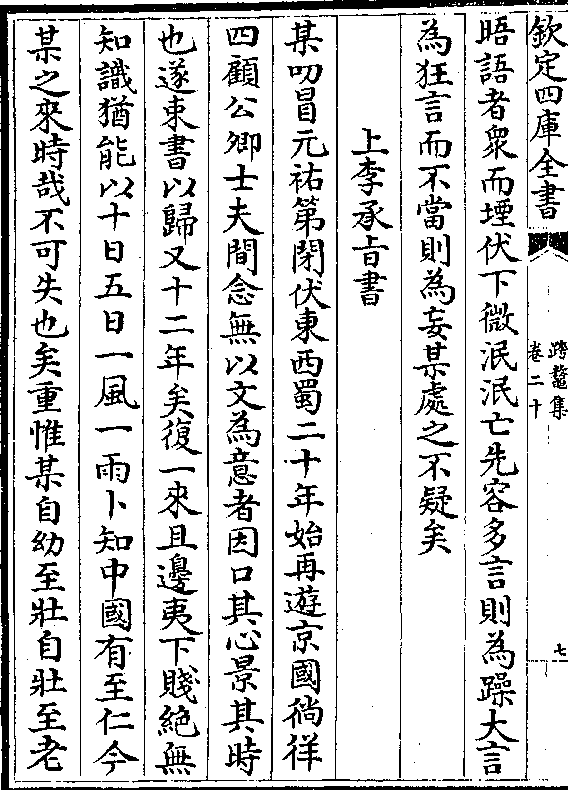 欽定四庫全書
跨鼇集
卷二十
七
晤語者衆而堙伏下微泯泯亡先容多言則為躁大言
為狂言而不當則為妄某處之不疑矣
上李承㫖書
某叨冒元祐第閉伏東西蜀二十年始再遊京國徜徉
四顧公卿士夫間念無以文為意者因口其心景其時
也遂束書以歸又十二年矣復一來且邊夷下賤絶無
知識猶能以十日五日一風一雨卜知中國有至仁今
某之來時哉不可失也矣重惟某自幼至壯自壯至老